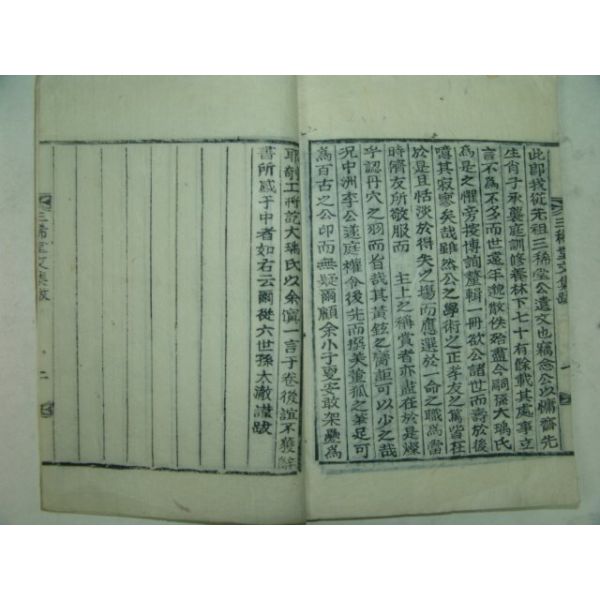 此即我從先祖三稀堂公遺文也竊念公以慵齋先
生肖子承襲庭訓修養林下七十有餘載其處事立
言不為不多而世遠年貌散佚殆盡今嗣孫大瑞氏
為是之懼旁搜博詢釐輯一冊欲公諸世而壽於後
噫其寂寥矣哉雖然公之學術之正孝友之篤皆在
於是且恬淡於得失之場而應選於一命之職為當
時儕友所敬服而 主上之稱賞者亦盡在於是燦
乎認丹穴之一羽而省哉其黃鉉之臠詎可以少之哉
況中洲李公蓬庭權令後先而撰美董狐之筆足可
為百古之公印而無疑爾顧余小子夏安敢架疊為
耶剞工將訖大瑞氏以余一言于卷後誼不獲辭
書所感于中者如右云爾從六世孫大澈謹跋
三稀堂文集跋
一
三稀堂文集跋
二